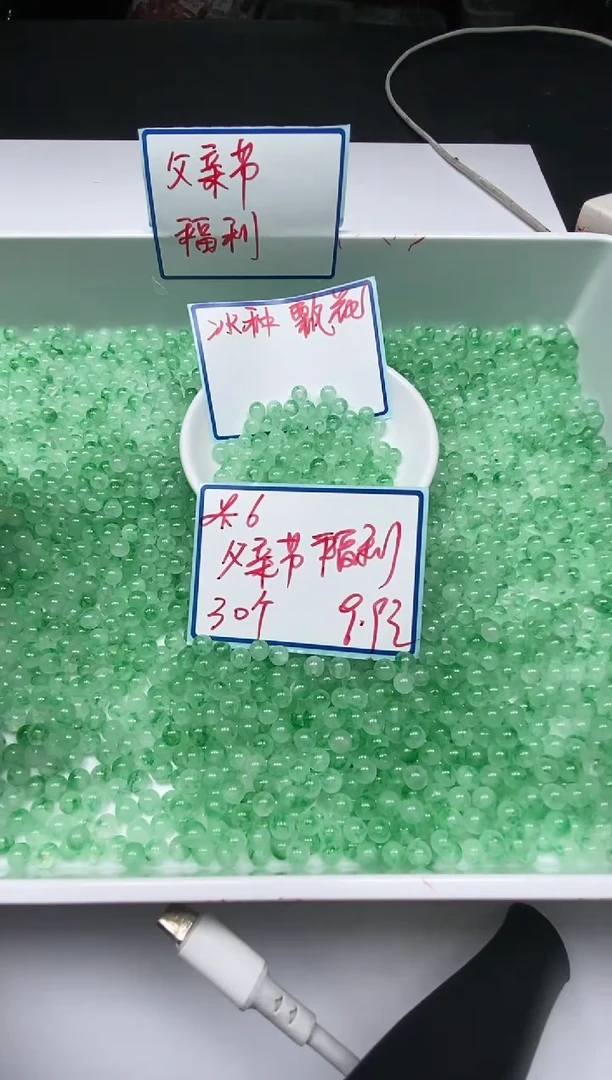 父亲节
福利
冰种 飘花
米6
父亲节福利
30个 9.9元